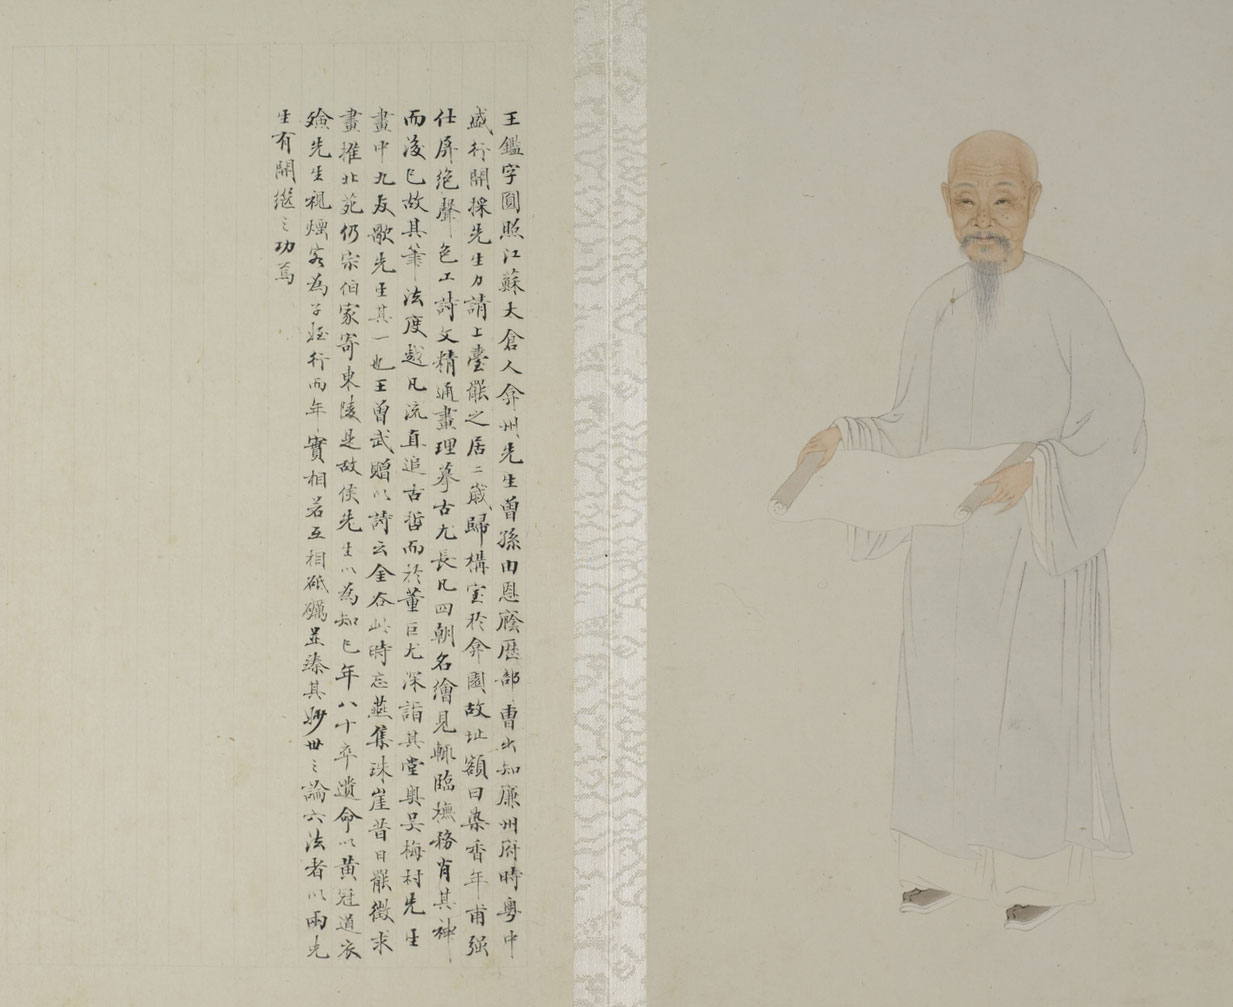 王鑑字圓照江蘇太倉人弇州先生曾孫由恩廕歷部曹出知廉州府時粵中
盛行開採先生力請上臺罷之居二歲歸構室於弇園故址額曰染香年甫强
仕屏絶聲色工詩文精通畫理摹古尤長凡四朝名繪見輒臨橅務肖其神
而後已故其筆法度越凡流直追古哲而於董巨尤深詣其堂奥吴梅村先生
畫中九友歌先生其一也王曾武贈以詩云金谷此時忘燕集珠崖昔日罷徵求
畫推北苑仍宗伯家寄東陵是故侯先生以為知己年八十卒遺命以黄冠道衣
殮先生視煙客為子姪行而年實相若互相砥礪並臻其妙世之論六法者以兩先
生有開繼之功焉